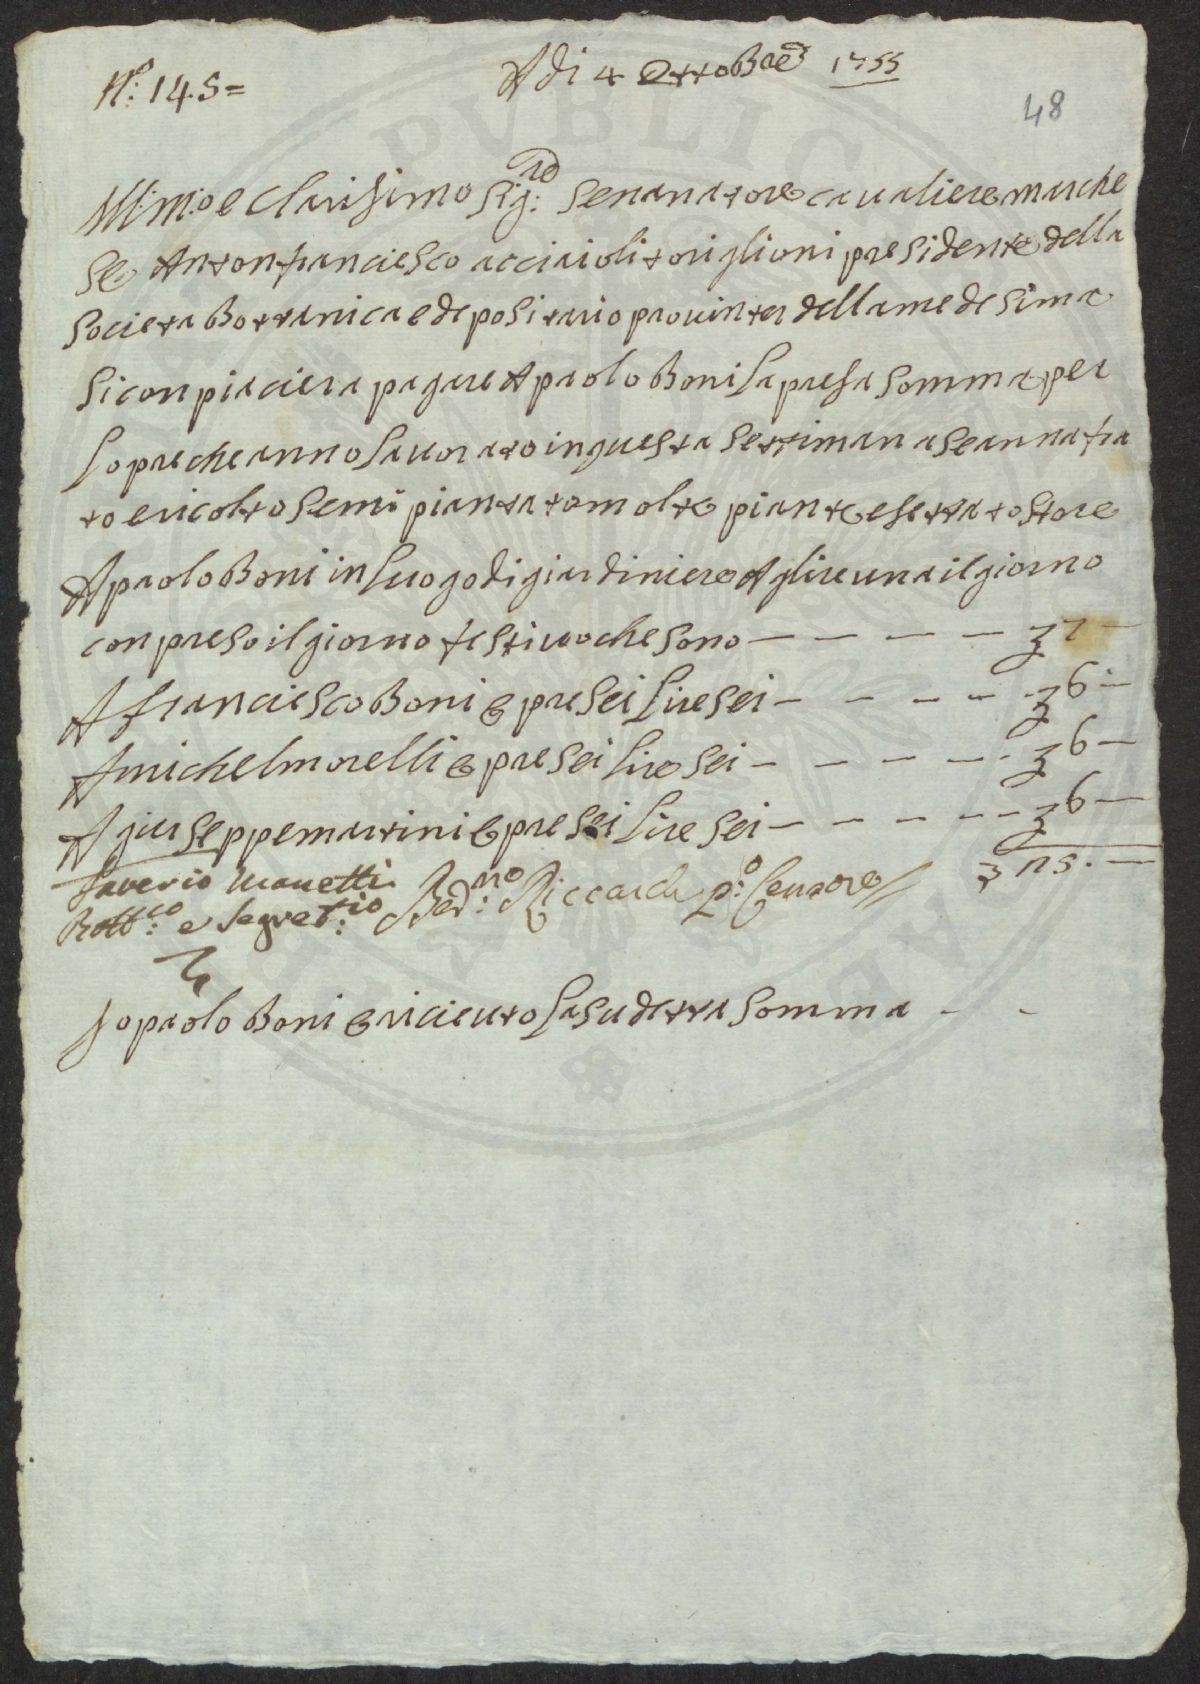 N.º 145=
A di 4 Ottobre 1755
48
Ill:mo e Clarisimo Sig:re Senanatore cavaliere marche
se Antonfranciesco acciaioli toriglioni presidente della
Societa Bottanica e depositario provinter della medesima
Si conpiaciera pagare A paolo Boni la presa Somma per
lopre che anno lavorato in questa Settimana se annafia
to e ricolto semi piantato molte piante e
A paolo Boni in luogo di giardiniere A lire una il giorno
conpreso il giorno festivo che sono — — — — — 7 —
A franciesco Boni e pre sei lire sei — — — — 6 —
A michel morelli e pre sei lire sei — — — — 6 —
A giuseppe martini e pre sei lire sei — — — — 6 —
25. —
Saverio Manetti
Bott:co e Segret:rio
Bed:no Riccardi p:o Censore
Io paolo Boni e ricieuto la sudetta somma - -